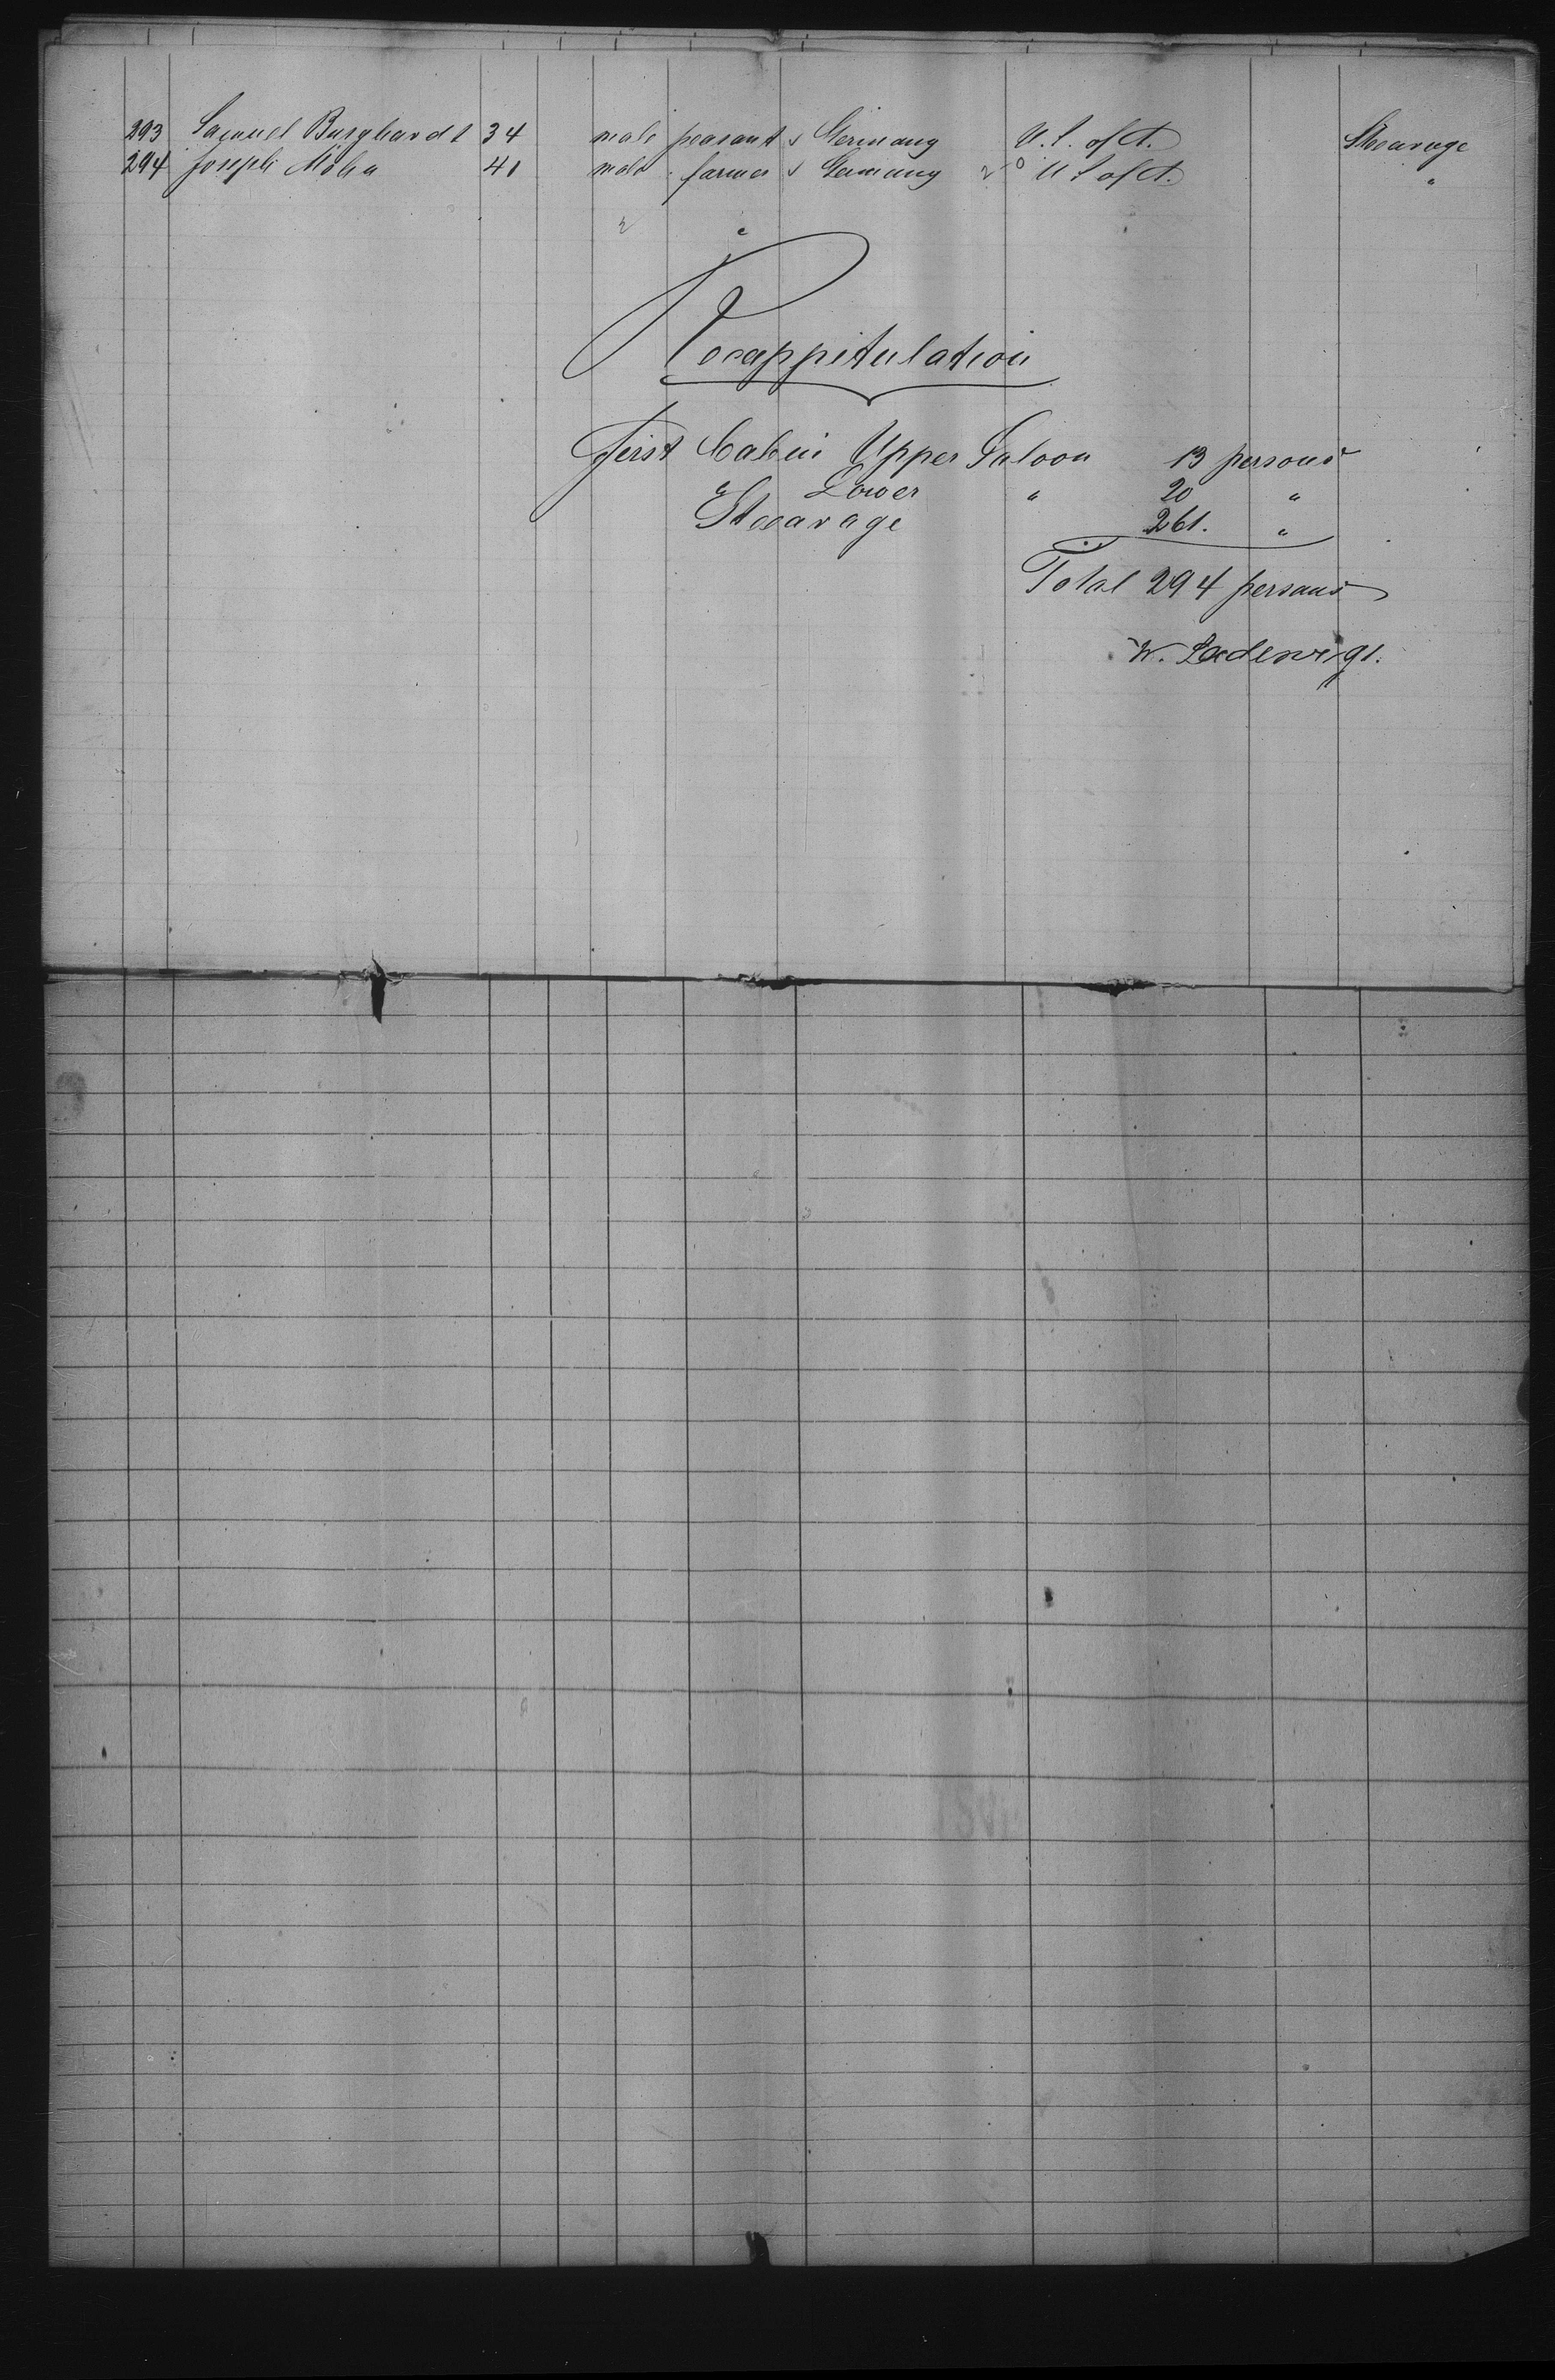 293 Samuel Burghardt 34 male peasant Germany U. S. of A. Stearage
294 Joseph 41 male farmer Germany U S of A. "
Recappitulation
First Cabin Upper Saloon 13 persons
" Lower " 20 "
Stearage 261. "
Total 294 persons
W. Ladewigs.